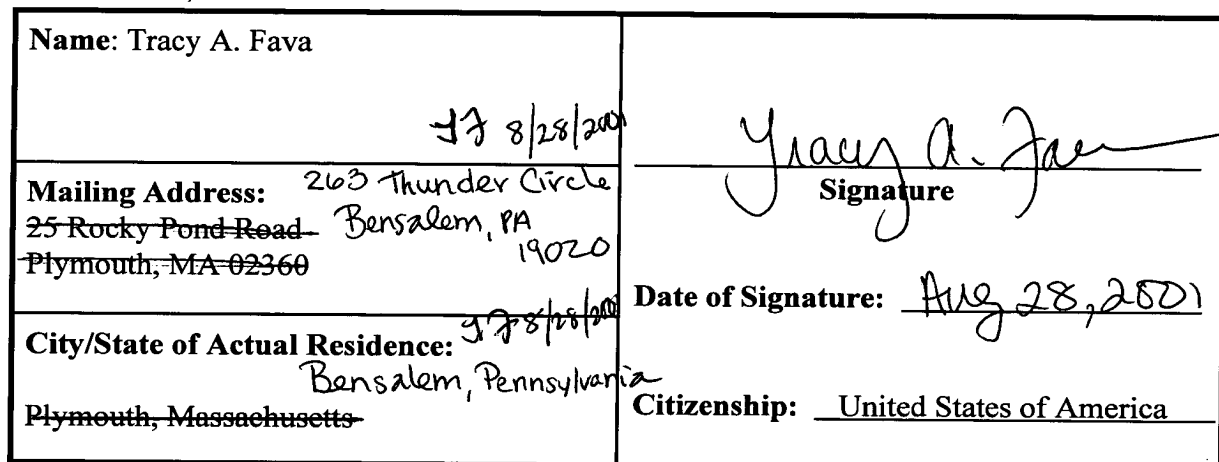 Name: Tracy A. Fava
TF 8/28/2001
Mailing Address: 263 Thunder Circle
25 Rocky Pond Road Bensalem, PA
19020
Plymouth, MA 02360
City/State of Actual Residence: TF 8/28/2001
Bensalem, Pennsylvania
Plymouth, Massachusetts
Tracy A. Fava
Signature
Date of Signature: Aug 28, 2001
Citizenship: United States of America